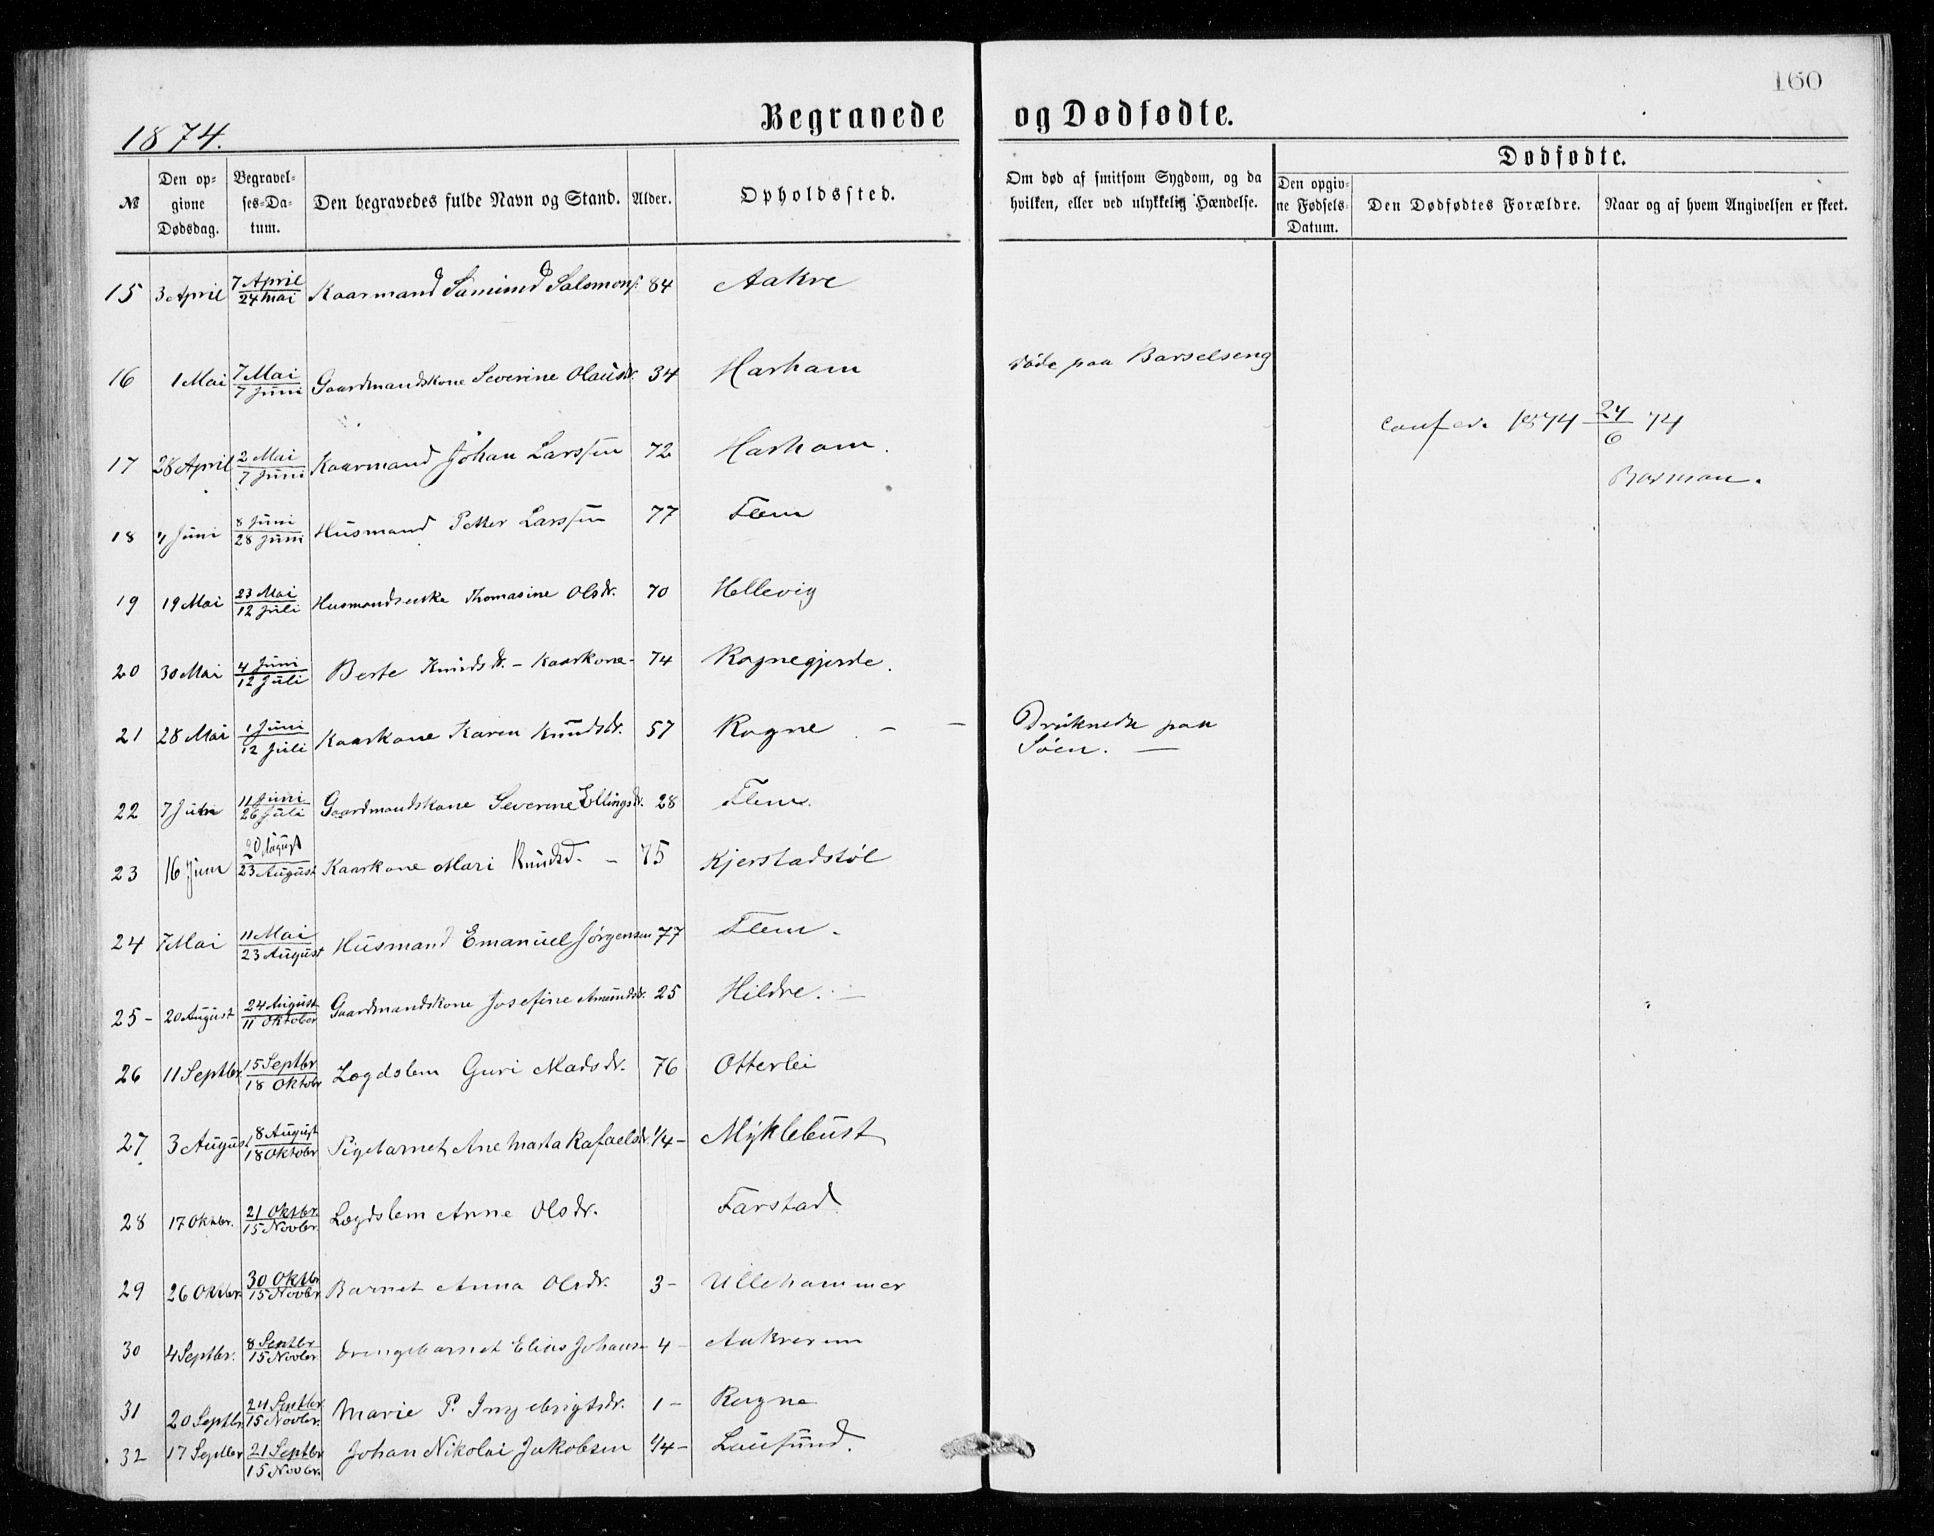 160
Begravede og Dødfødte.
1874.
Dødfødte.
№
Den opgivne Dødsdag.
Begravelses-Datum.
Den begravedes fulde Navn og Stand.
Alder.
Opholdssted.
Om død af smitsom Sygdom, og da hvilken, eller ved ulykkelig Hændelse.
Den opgivne Fødsels-Datum.
Den Dødfødtes Forældre.
Naar og af hvem Angivelsen er skeet.
15 3 April 7 April / 24 Mai Kaarmand Samund Salomons. 84 Aakre
16 1 Mai 7 Mai / 7 Juni Gaardmandskone Severine Olausdr. 34 Harham døde paa Barselseng
24/6 74
17 28 April 2 Mai / 7 Juni Kaarmand Johan Larssen 72 Harham.
18 4 Juni 8 Juni / 28 Juni Husmand Petter Larssen 77 Flem
19 19 Mai 23 Mai / 12 Juli Husmandsenke Thomasine Olsdr. 70 Hellevig
20 30 Mai 4 Juni / 12 Juli Berte Knudsdr. - Kaarkone - 74 Rognegjerde.
21 28 Mai 1 Juni / 12 Juli Kaarkone Karen Knudsdr. 57 Rogne - - Druknede paa
Søen. -
22 7 Juni 11 Juni / 26 Juli Gaardmandskone Severine Ellingsdr. 28 Flem.
23 16 Juni 20 August / 23 August Kaarkone Mari Knudsd. - 75 Kjerstadstøl
24 7 Mai 11 Mai / 23 August Husmand Emanuel Jørgensen 77 Flem.
25 - 20 August 24 August / 11 Oktober Gaardmandskone Josefine Amundsdr. 25 Hildre. -
26 11 Septbr. 15 Septbr / 18 Oktobr Lægdslem Guri Madsdr. 76 Otterlei
27 3 August 8 August / 18 Oktobr Pigebarnet Ane Marta Rafaelsdr. 1/4 - Myklebust
28 17 Oktbr. 21 Oktbr. / 15 Novbr. Lægdslem Anne Olsdr. Farstad
29 26 Oktbr. 30 Oktbr / 15 Novbr Barnet Anna Olsdr. 3 - Ullehammer
30 4 Septbr. 8 Septbr / 15 Novbr Drengebarnet Elias Johans. 4 - Aakrerem
31 20 Septbr. 24 Septbr / 15 Novbr. Marie P. Ingebrigtsdr. 1 - Rogne
32 17 Septbr 21 Septbr / 15 Novbr. Johan Nikolai Jakobsen 1/4 - Lausund.